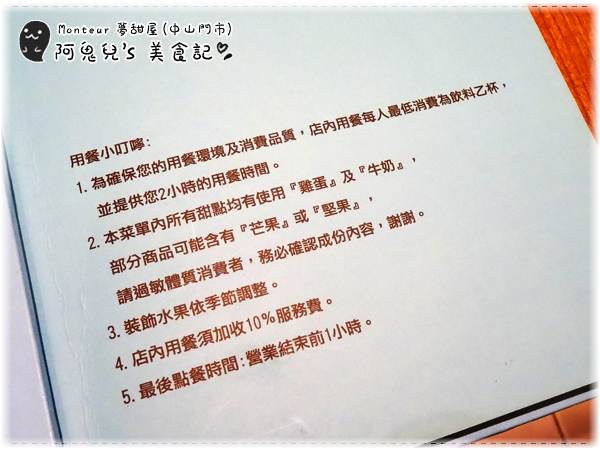 Monteur 夢甜屋(中山門市)
阿鬼兒's 美食記
用餐小叮嚀:
1. 為確保您的用餐環境及消費品質，店內用餐每人最低消費為飲料乙杯，
並提供您2小時的用餐時間。
2. 本菜單內所有甜點均有使用『雞蛋』及『牛奶』，
部分商品可能含有『芒果』或『堅果』，
請過敏體質消費者，務必確認成份內容，謝謝。
3. 裝飾水果依季節調整。
4. 店內用餐須加收10%服務費。
5. 最後點餐時間:營業結束前1小時。